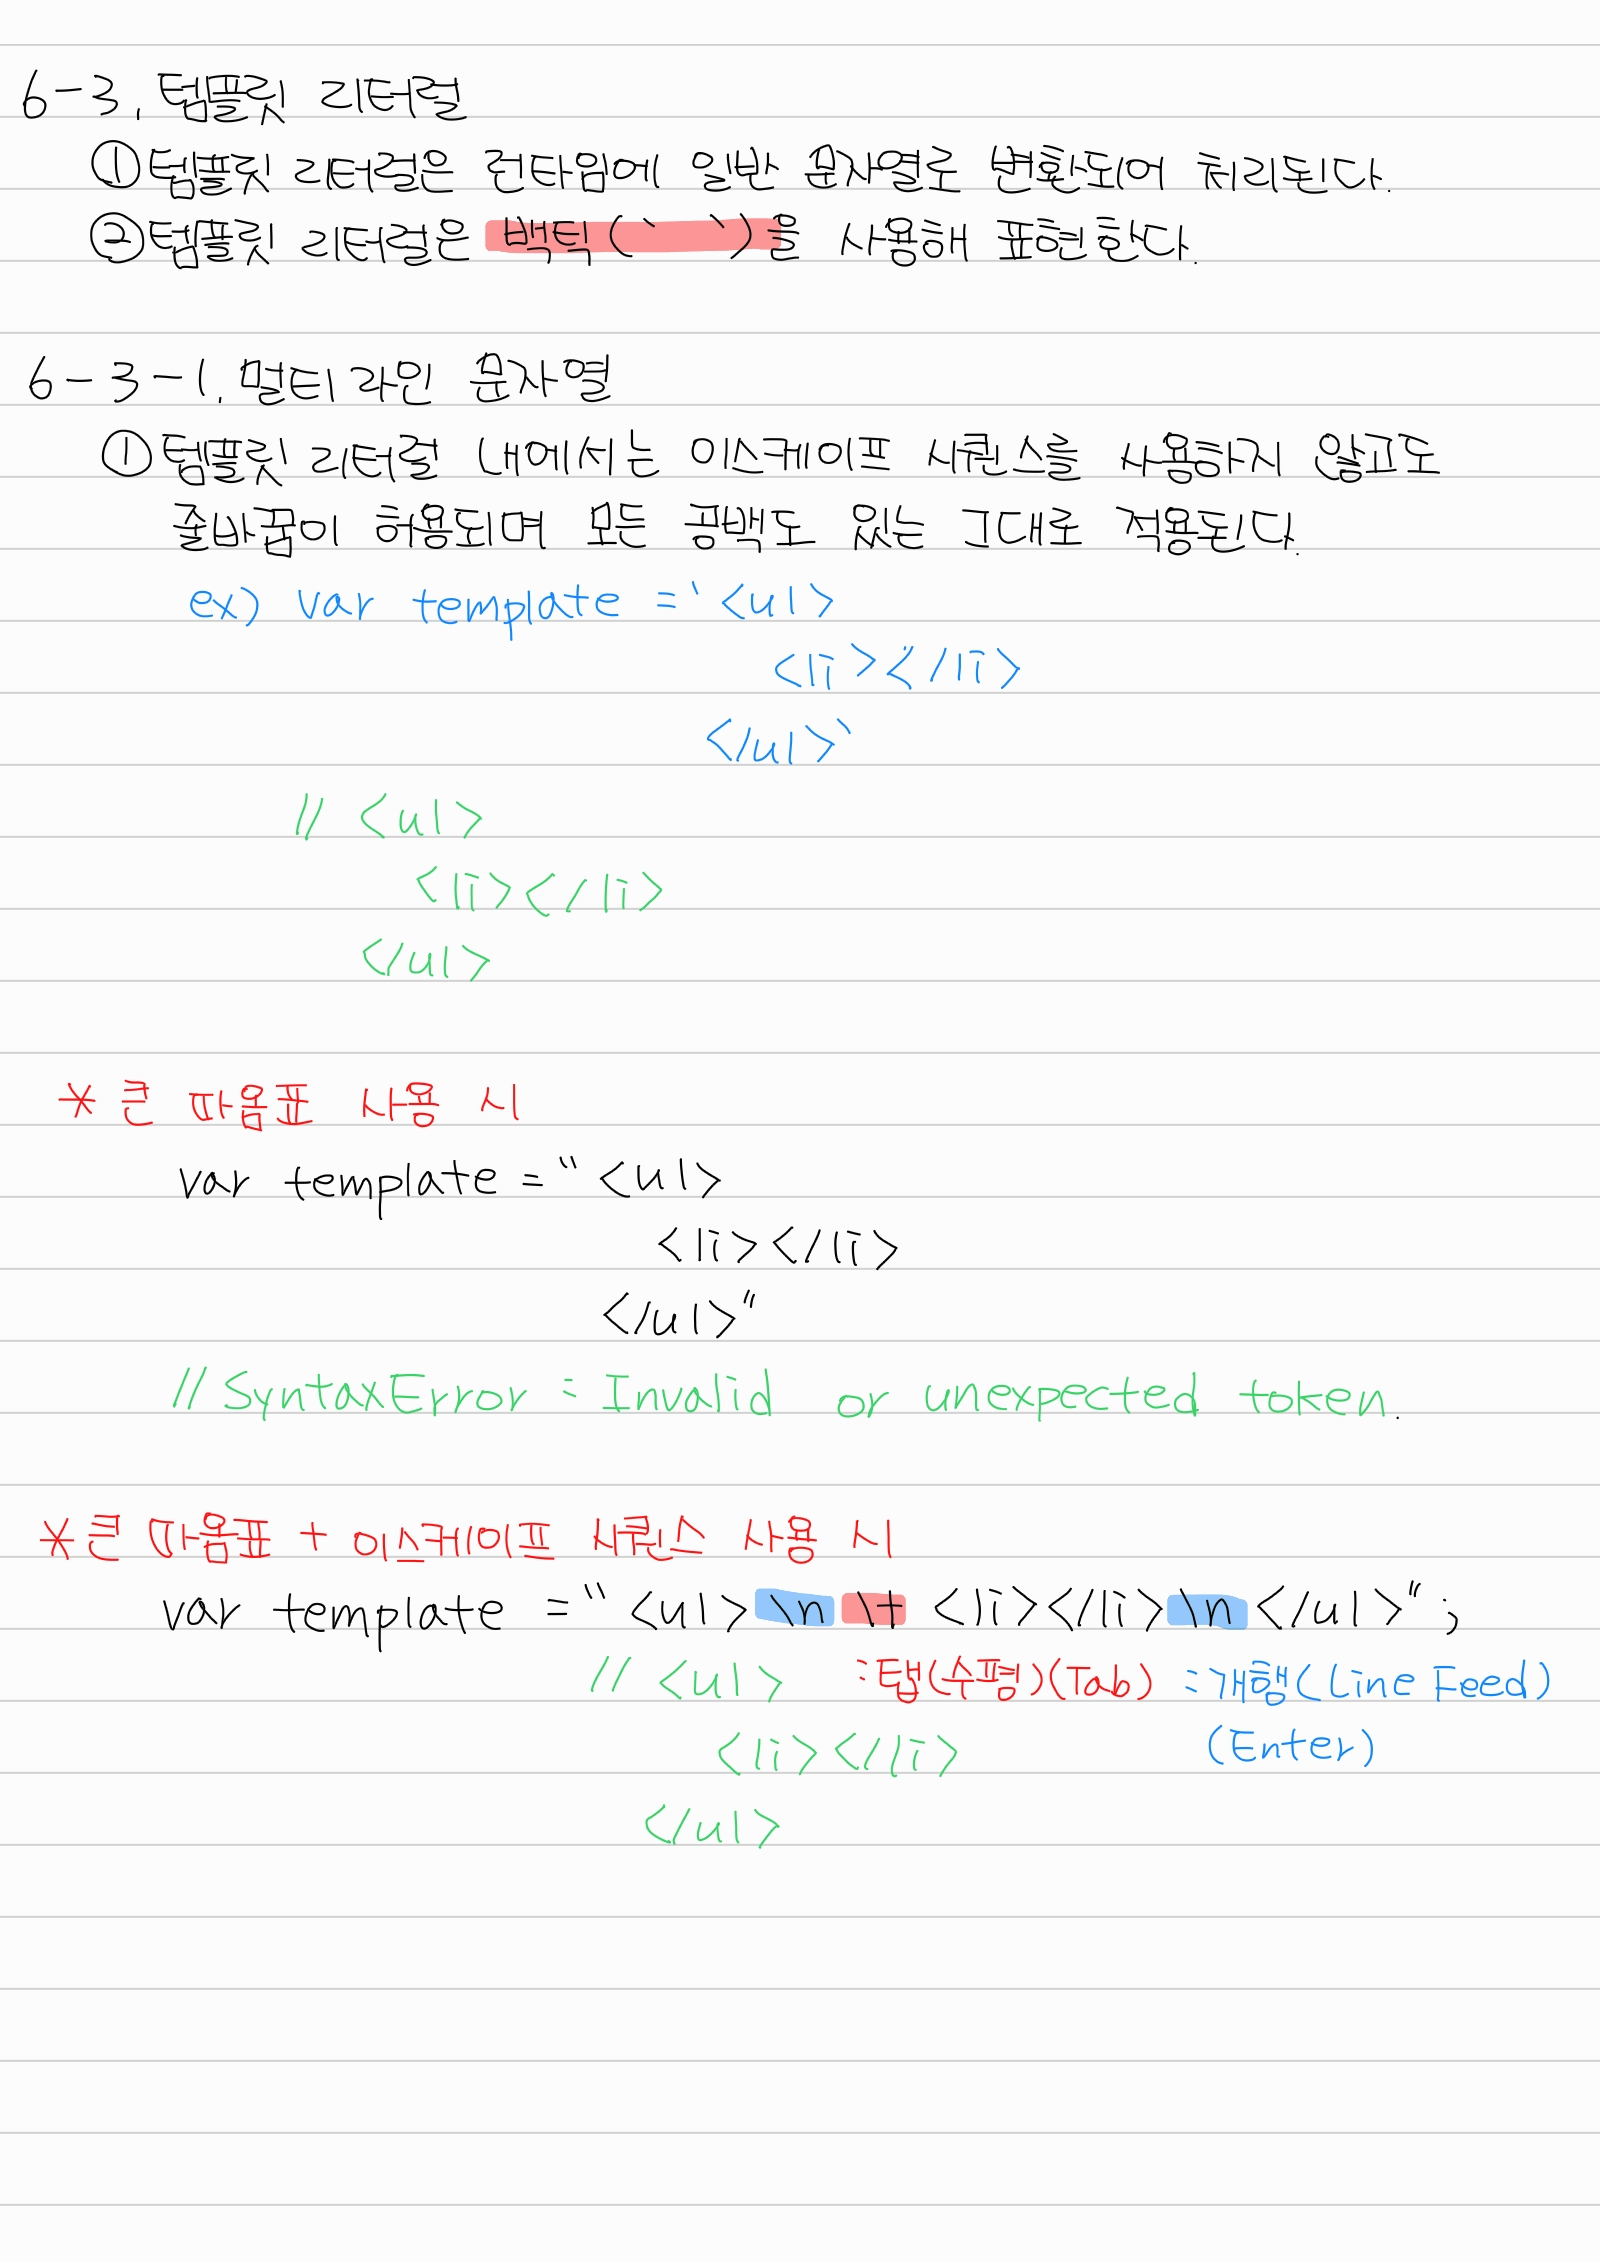 6-3. 템플릿 리터럴
① 템플릿 리터럴은 런타임에 일반 문자열로 변환되어 처리된다.
② 템플릿 리터럴은 백틱(` `)을 사용해 표현한다.
6-3-1. 멀티라인 문자열
① 템플릿 리터럴 내에서는 이스케이프 시퀀스를 사용하지 않고도
줄바꿈이 허용되며 모든 공백도 있는 그대로 적용된다.
ex) var template = `<ul>
<li></li>
</ul>`
// <ul>
<li></li>
</ul>
* 큰 따옴표 사용 시
var template = "<ul>
<li></li>
</ul>"
// SyntaxError : Invalid or unexpected token.
* 큰 따옴표 + 이스케이프 시퀀스 사용 시
var template = "<ul>\n\t<li></li>\n</ul>";
// <ul> :탭(수평)(Tab) :개행(Line Feed)
<li></li> (Enter)
</ul>